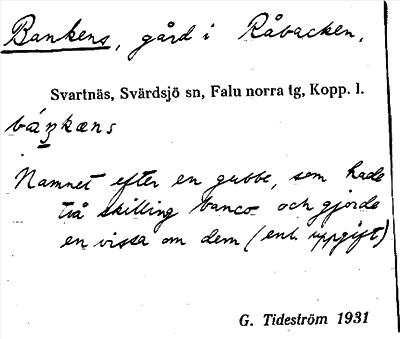 Bankens, gård i Råbacken,
Svartnäs, Svärdsjö sn, Falu norra tg, Kopp. l.
báŋkæns
Namnet efter en gubbe, som hade
två skilling banco och gjorde
en vissa om dem (enl. uppgift)
G. Tideström 1931